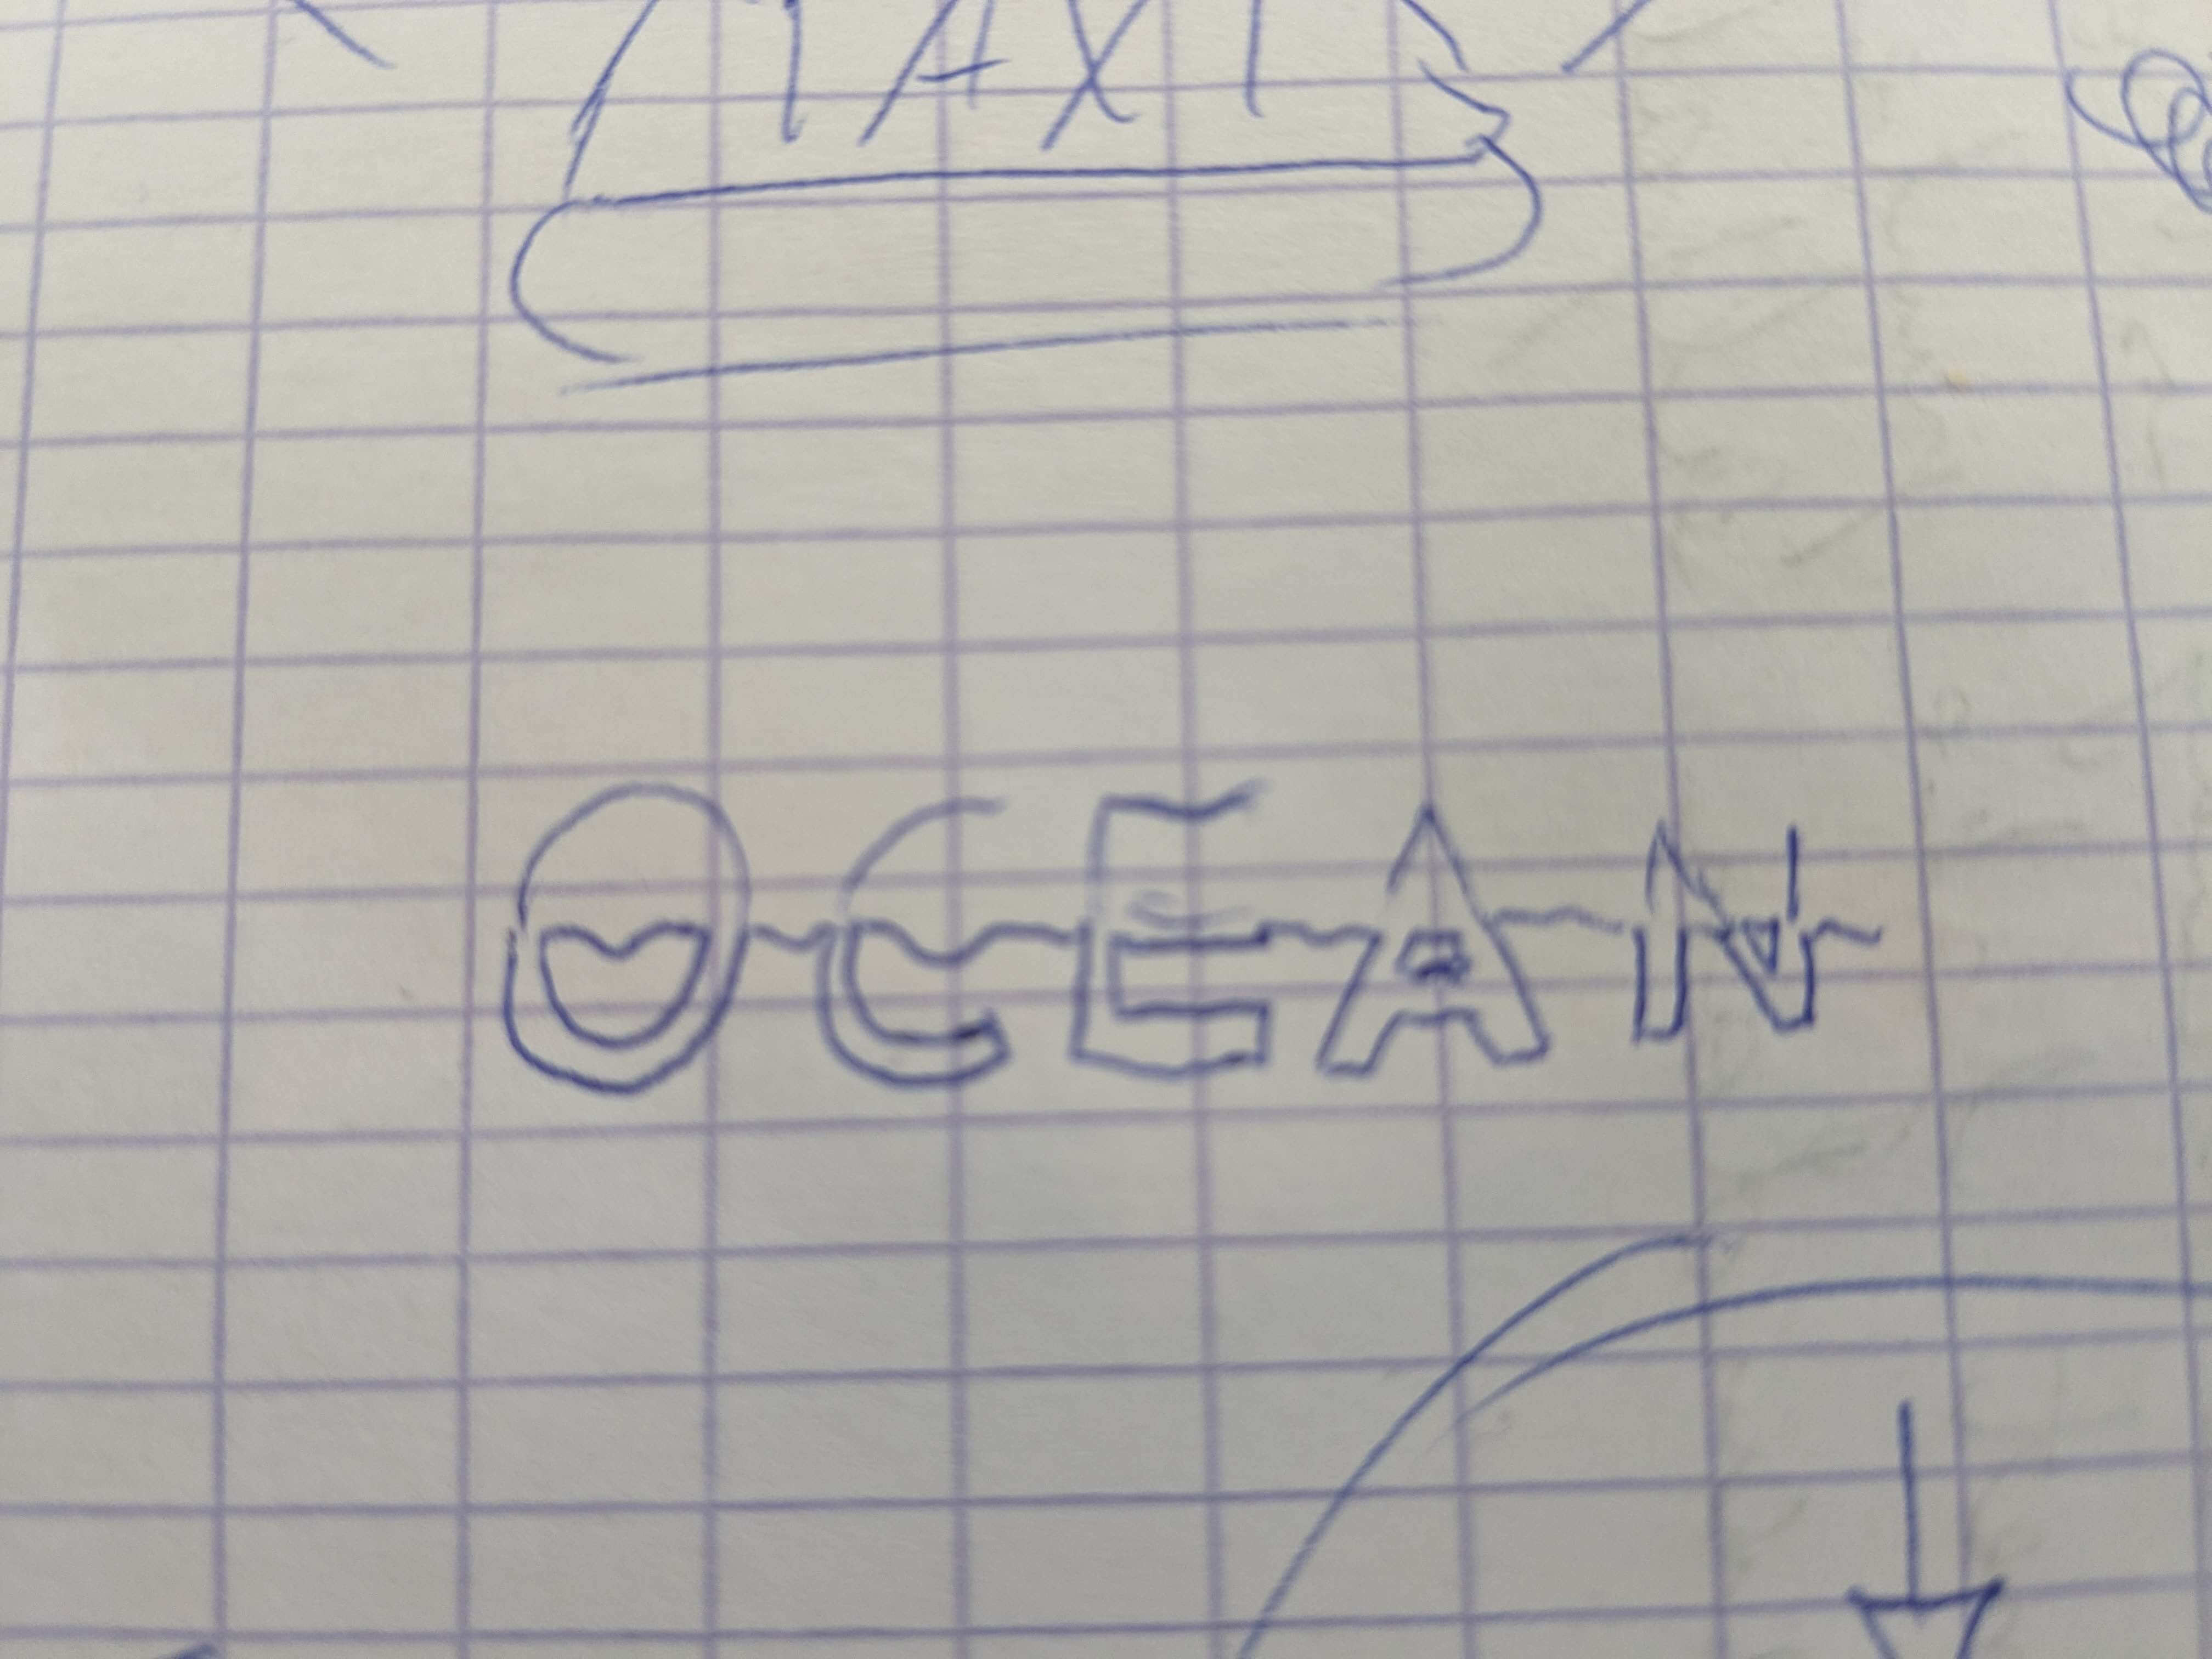 TAXI
OCEAN